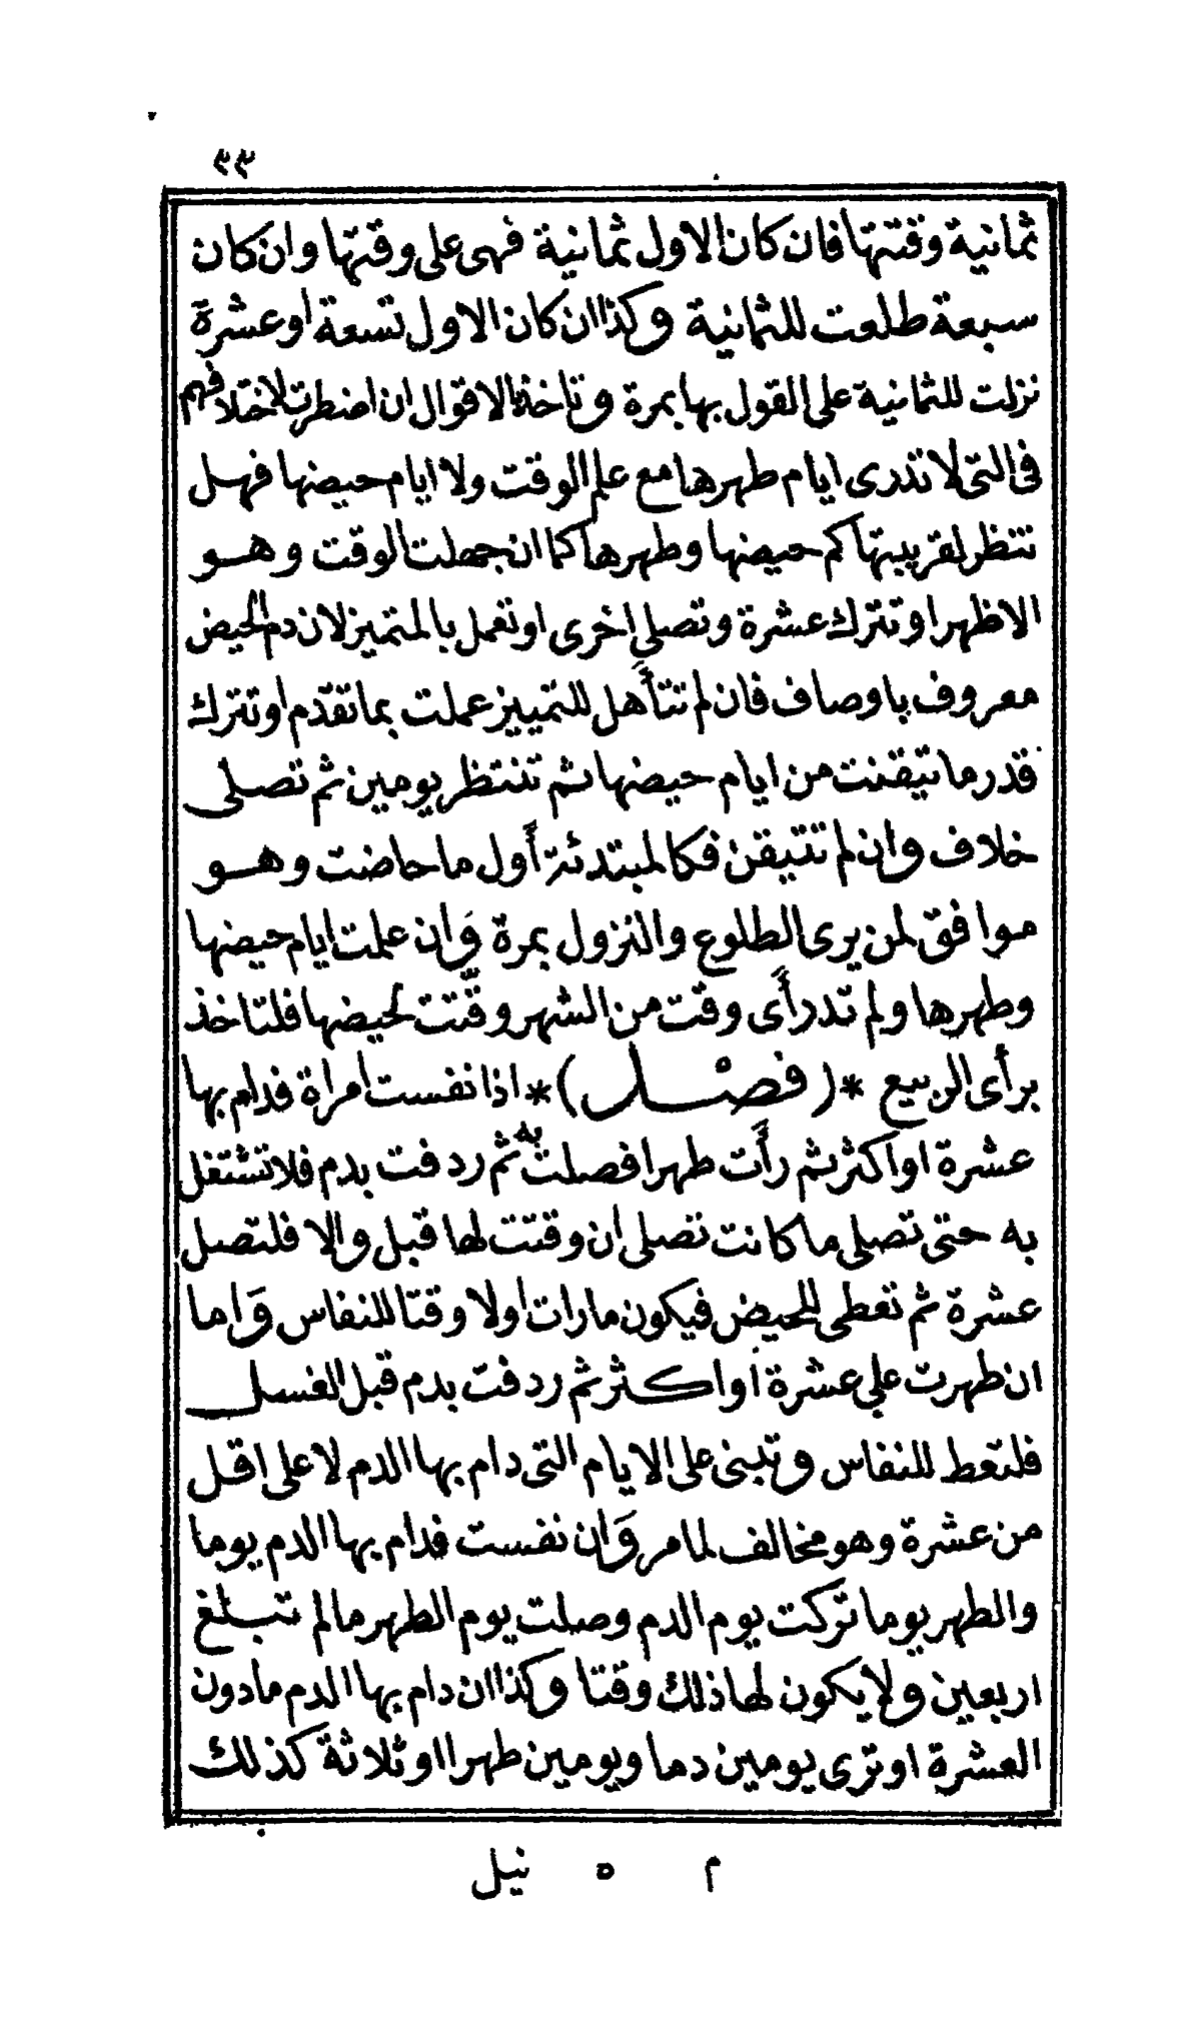 ٣٣
ثمانية وقتتها فان كان الاول ثمانية فهى على وقتها وان كان
سبعة طلعت للثمانية وكذا ان كان الاول تسعة اوعشرة
نزلت للثمانية على القول بها بمرة وتاخذ بالاقوال ان اضطرت لاختلافهم
فى التى لا تدرى ايام طهرها مع علم الوقت ولا ايام حيضها فهل
تنظر لقريبتها كم حيضها وطهرها كما ان جهلت الوقت وهو
الاظهر او تترك عشرة وتصلى اخرى او تعمل بالمتميز لان دم الحيض
معروف باوصاف فان لم تتأهل للتمييز عملت بما تقدّم او تترك
قدر ما تيقنت من ايام حيضها ثم تنتظر يومين ثم تصلى
خلاف وان لم تتيقن فكالمبتدئة أول ما حاضت وهو
موافق لمن يرى الطلوع والنزول بمرة وَان علمت ايام حيضها
وطهرها ولم تدر أى وقت من الشهر وقّتت لحيضها فلتاخذ
برأى الربيع *(فصْل)* اذا نفست امراة فدام بها
عشرة او اكثر ثم رأت طهرا فصلت به ثم ردفت بدم فلا تشتغل
به حتى تصلى ما كانت تصلى ان وقتت لها قبل والا فلتصل
عشرة ثم تعطى للحيض فيكون ما رات اولا وقتا للنفاس وَاما
ان طهرت على عشرة او اكثر ثم ردفت بدم قبل الغسل
فلتعط للنفاس وتبنى على الايام التى دام بها الدم لا على اقل
من عشرة وهو مخالف لما مر وَان نفست فدام بها الدم يوما
والطهر يوما تركت يوم الدم وصلت يوم الطهر ما لم تبلغ
اربعين ولا يكون لها ذلك وقتا وكذا ان دام بها الدم ما دون
العشرة او ترى يومين دما ويومين طهرا او ثلاثة كذلك
م ٥ نيل